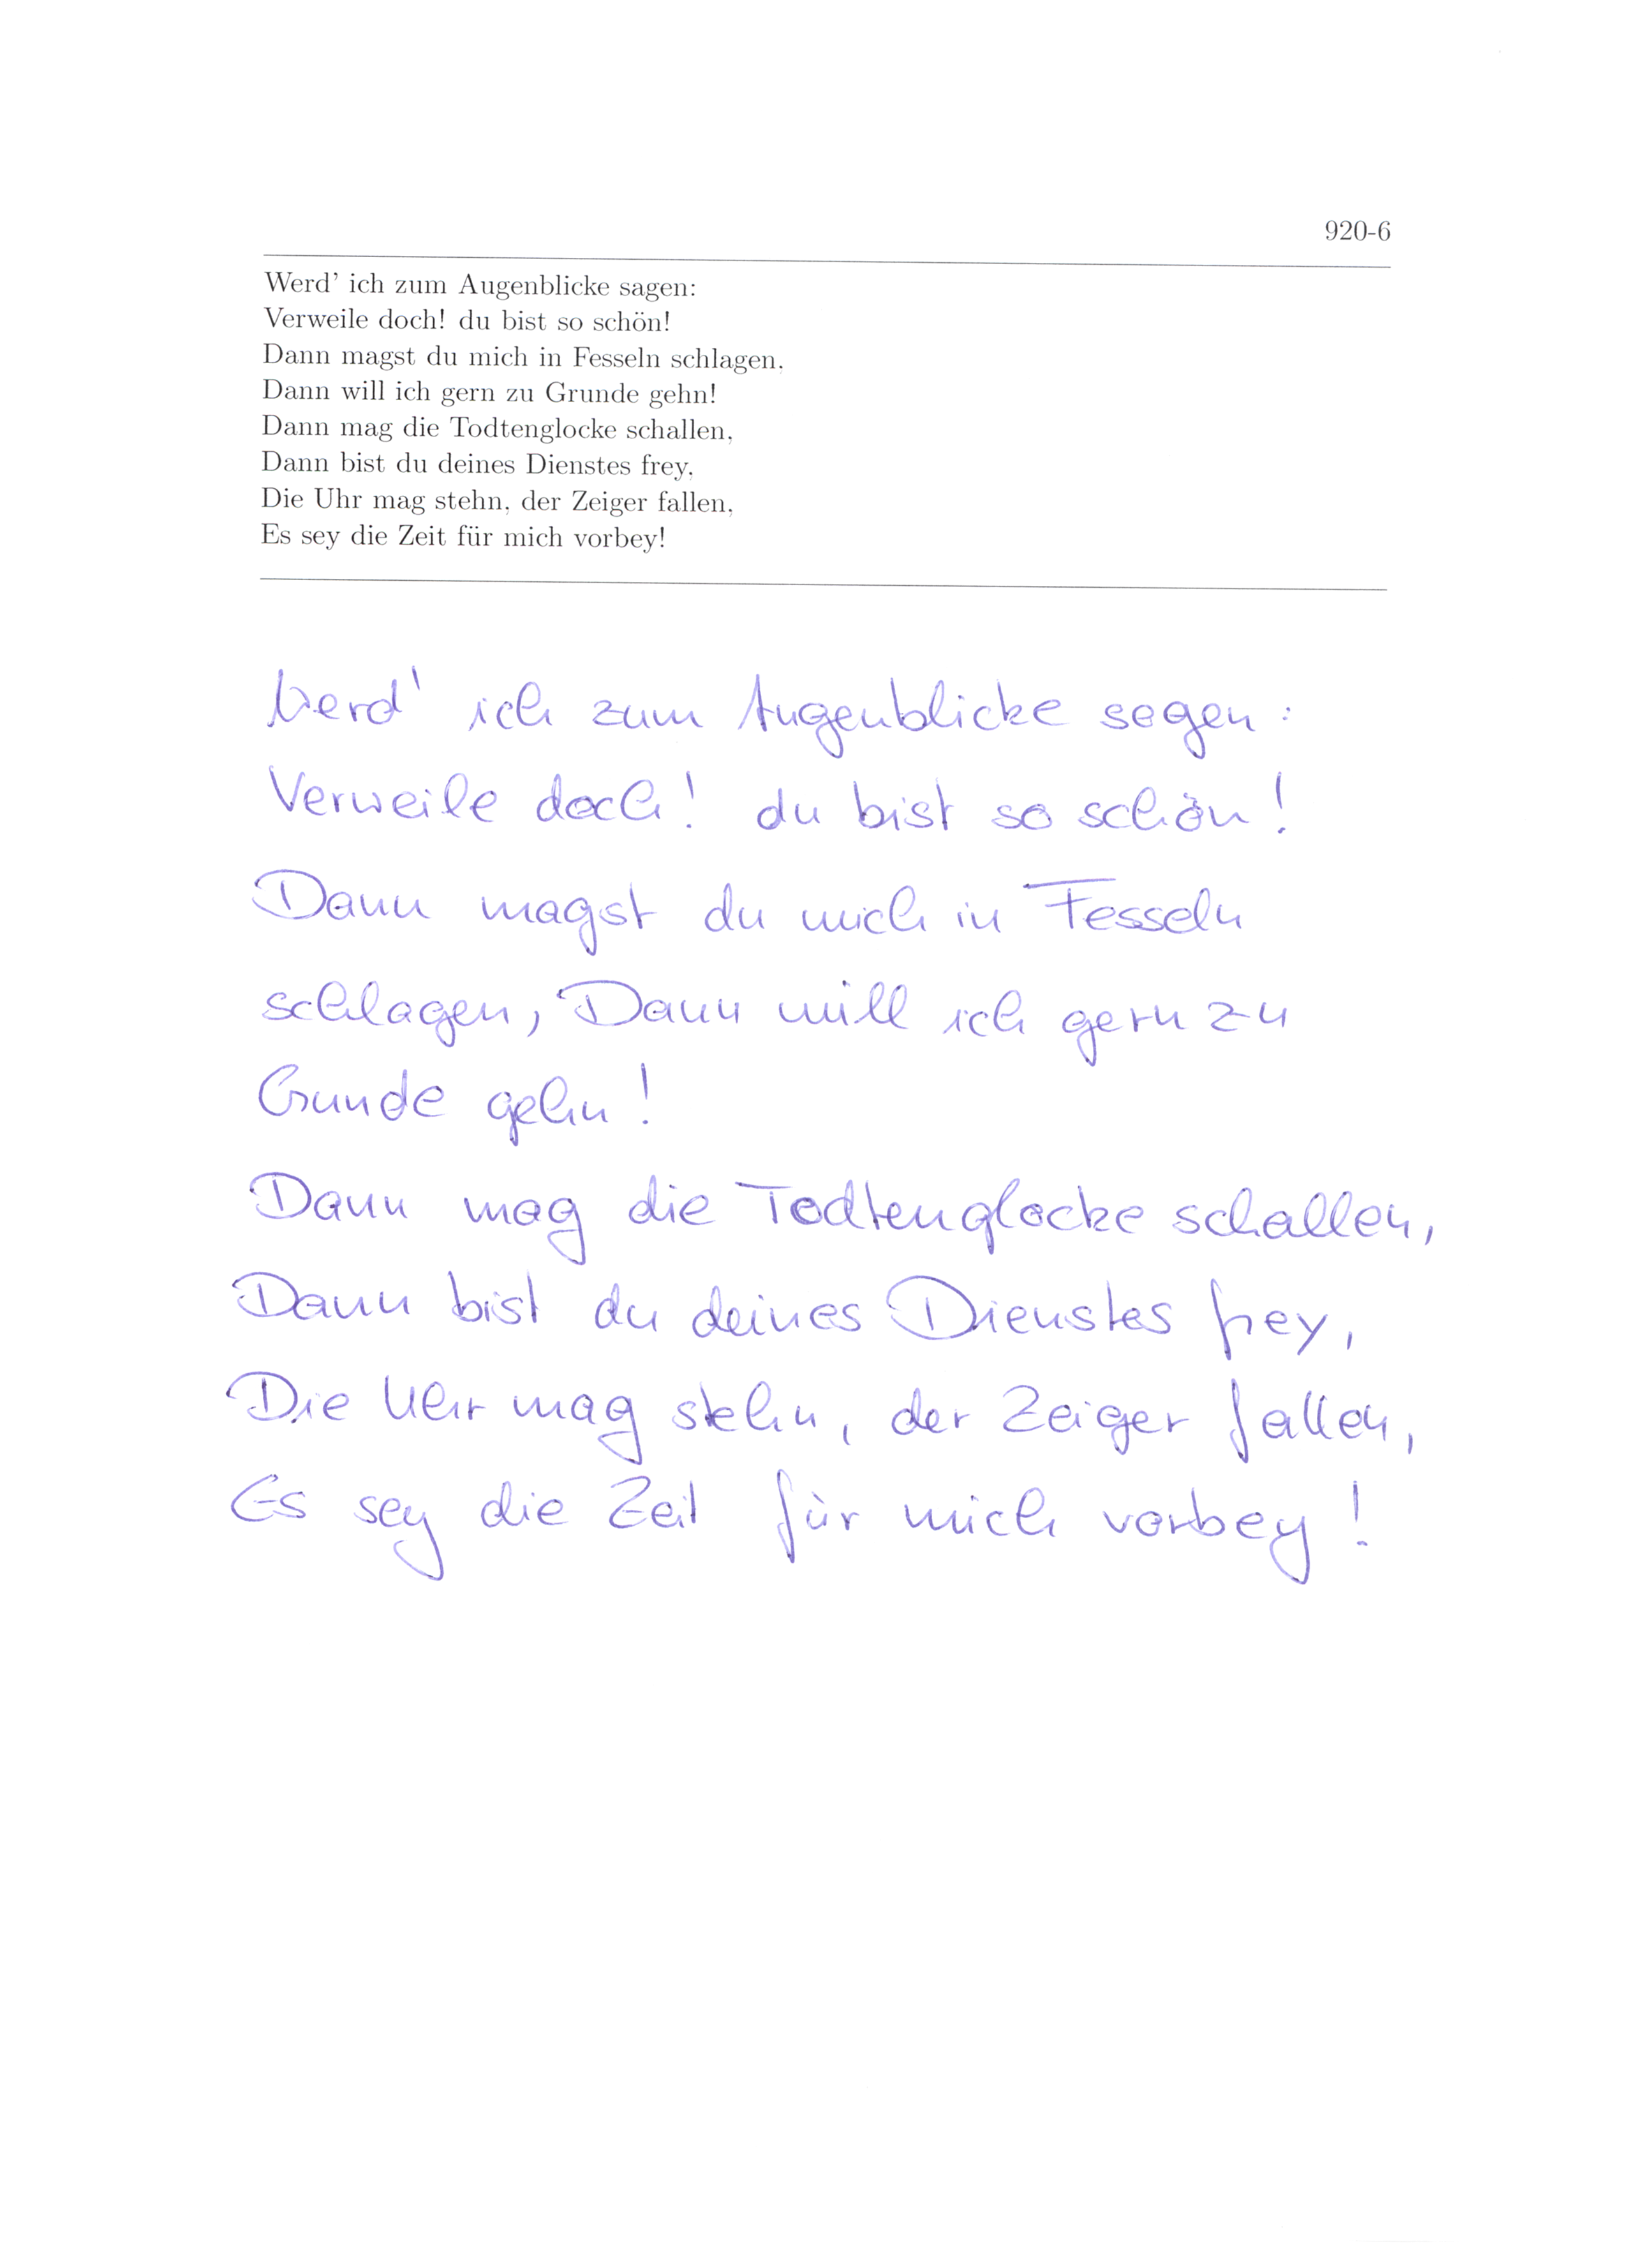 920-6
Werd' ich zum Augenblicke sagen:
Verweile doch! du bist so schön!
Dann magst du mich in Fesseln schlagen,
Dann will ich gern zu Grunde gehn!
Dann mag die Todtenglocke schallen,
Dann bist du deines Dienstes frey,
Die Uhr mag stehn, der Zeiger fallen,
Es sey die Zeit für mich vorbey!
Werd' ich zum Augenblicke sagen:
Verweile doch! du bist so schön!
Dann magst du mich in Fesseln
schlagen, Dann will ich gern zu
Grunde gehn!
Dann mag die Todtenglocke schallen,
Dann bist du deines Dienstes frey,
Die Uhr mag stehn, der Zeiger fallen,
Es sey die Zeit für mich vorbey!